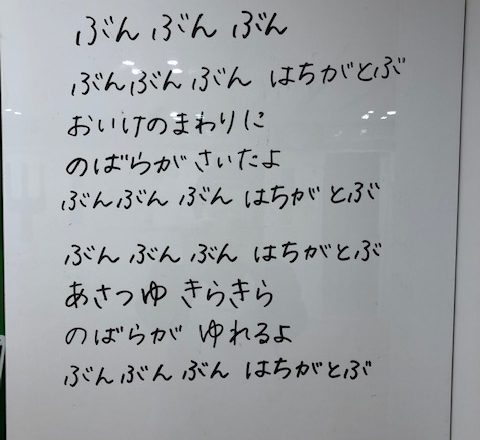 ぶん ぶん ぶん
ぶんぶん ぶん はちがとぶ
おいけのまわりに
のばらが さいたよ
ぶんぶん ぶん はちが とぶ
ぶん ぶん ぶん はちがとぶ
あさつゆ きらきら
のばらが ゆれるよ
ぶん ぶん ぶん はちがとぶ